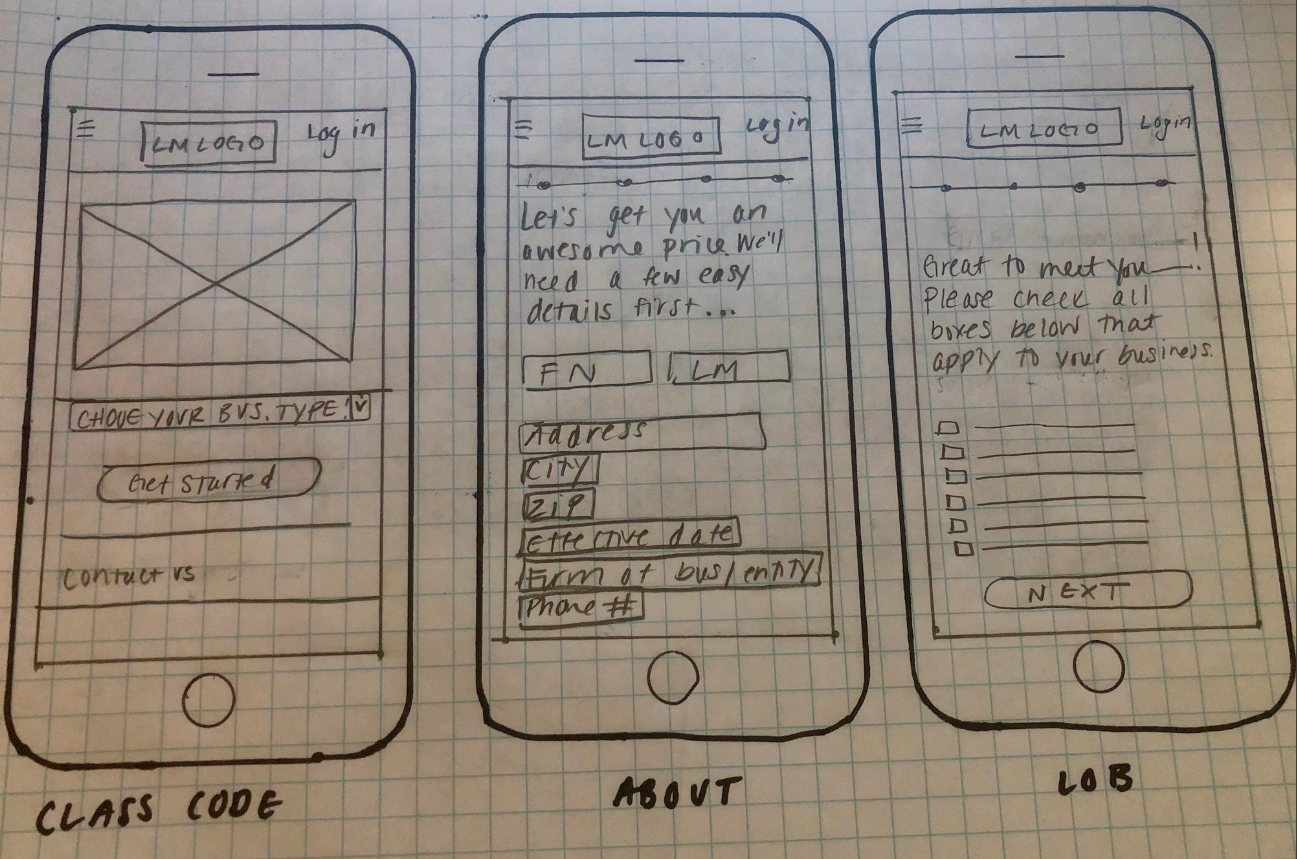 LM LOGO
Log in
CHOVE YOUR BUS. TYPE!
Get Started
Contact us
CLASS CODE
LM LOGO
Log in
Let's get you an
awesome price. We'll
need a few easy
details first...
FN
LM
Address
City
Zip
Effective date
Form of bus/entity
Phone #
ABOUT
LM LOGO
Login
Great to meet you __!
Please check all
boxes below that
apply to your business.
NEXT
LOB